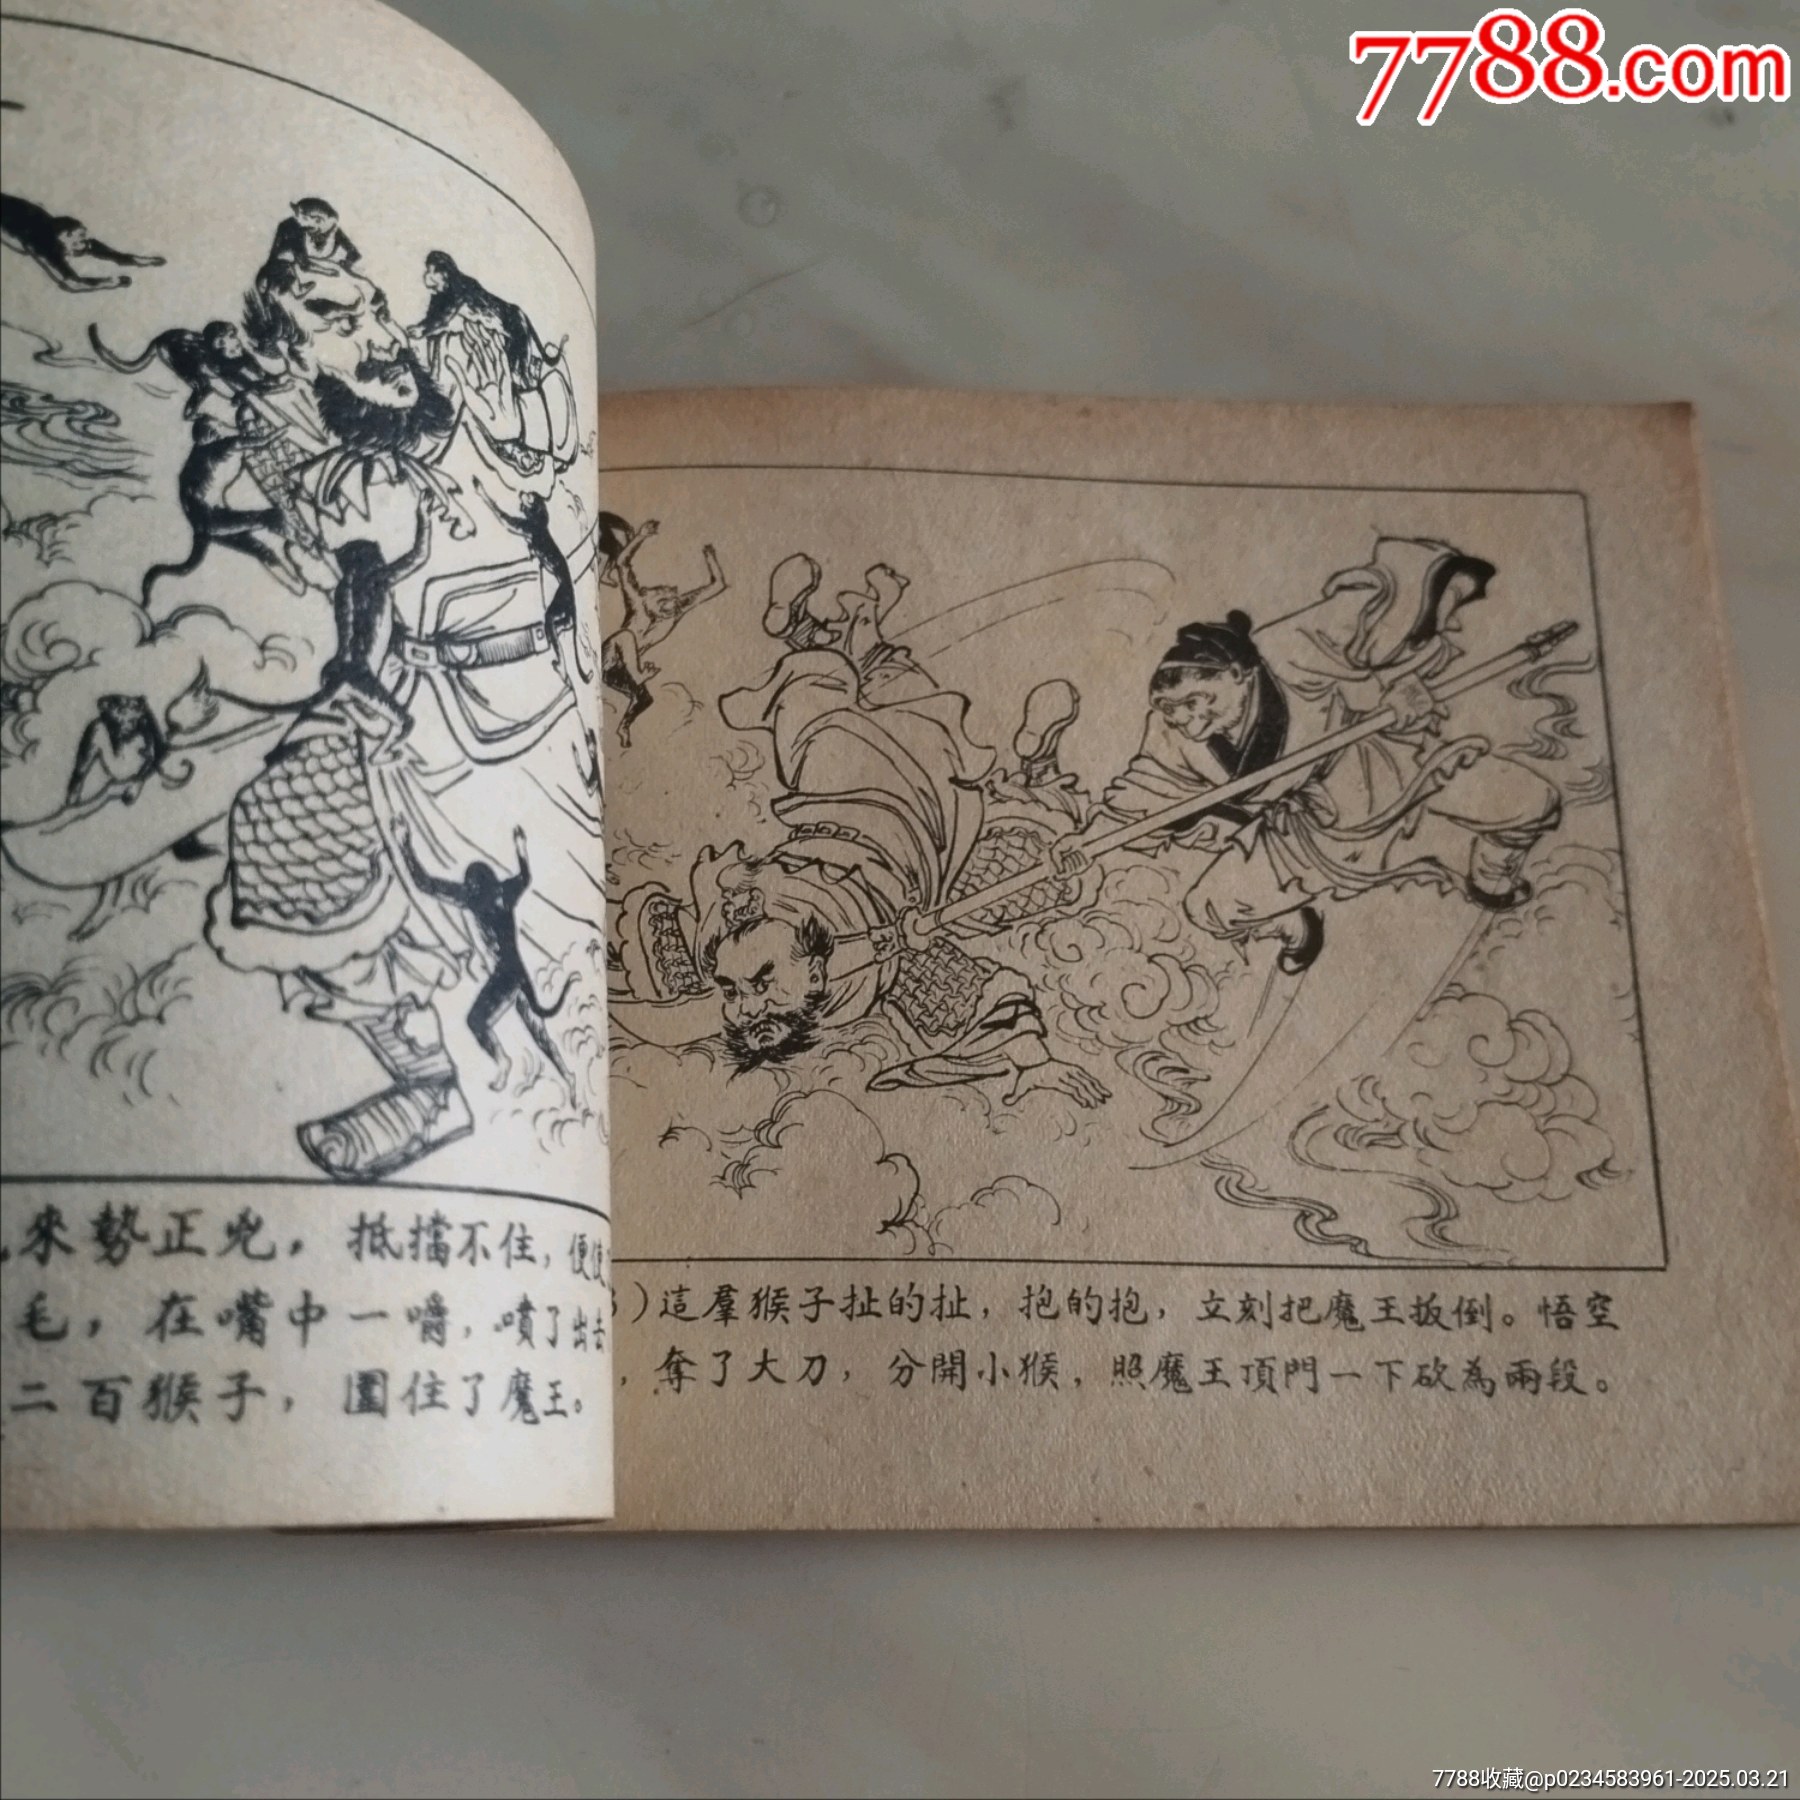 7788.com
來勢正兇，抵擋不住，便使
毛，在嘴中一嚼，噴了出去
二百猴子，圍住了魔王。
）這羣猴子扯的扯，抱的抱，立刻把魔王扳倒。悟空
，奪了大刀，分開小猴，照魔王頂門一下砍為兩段。
7788收藏@p0234583961-2025.03.21